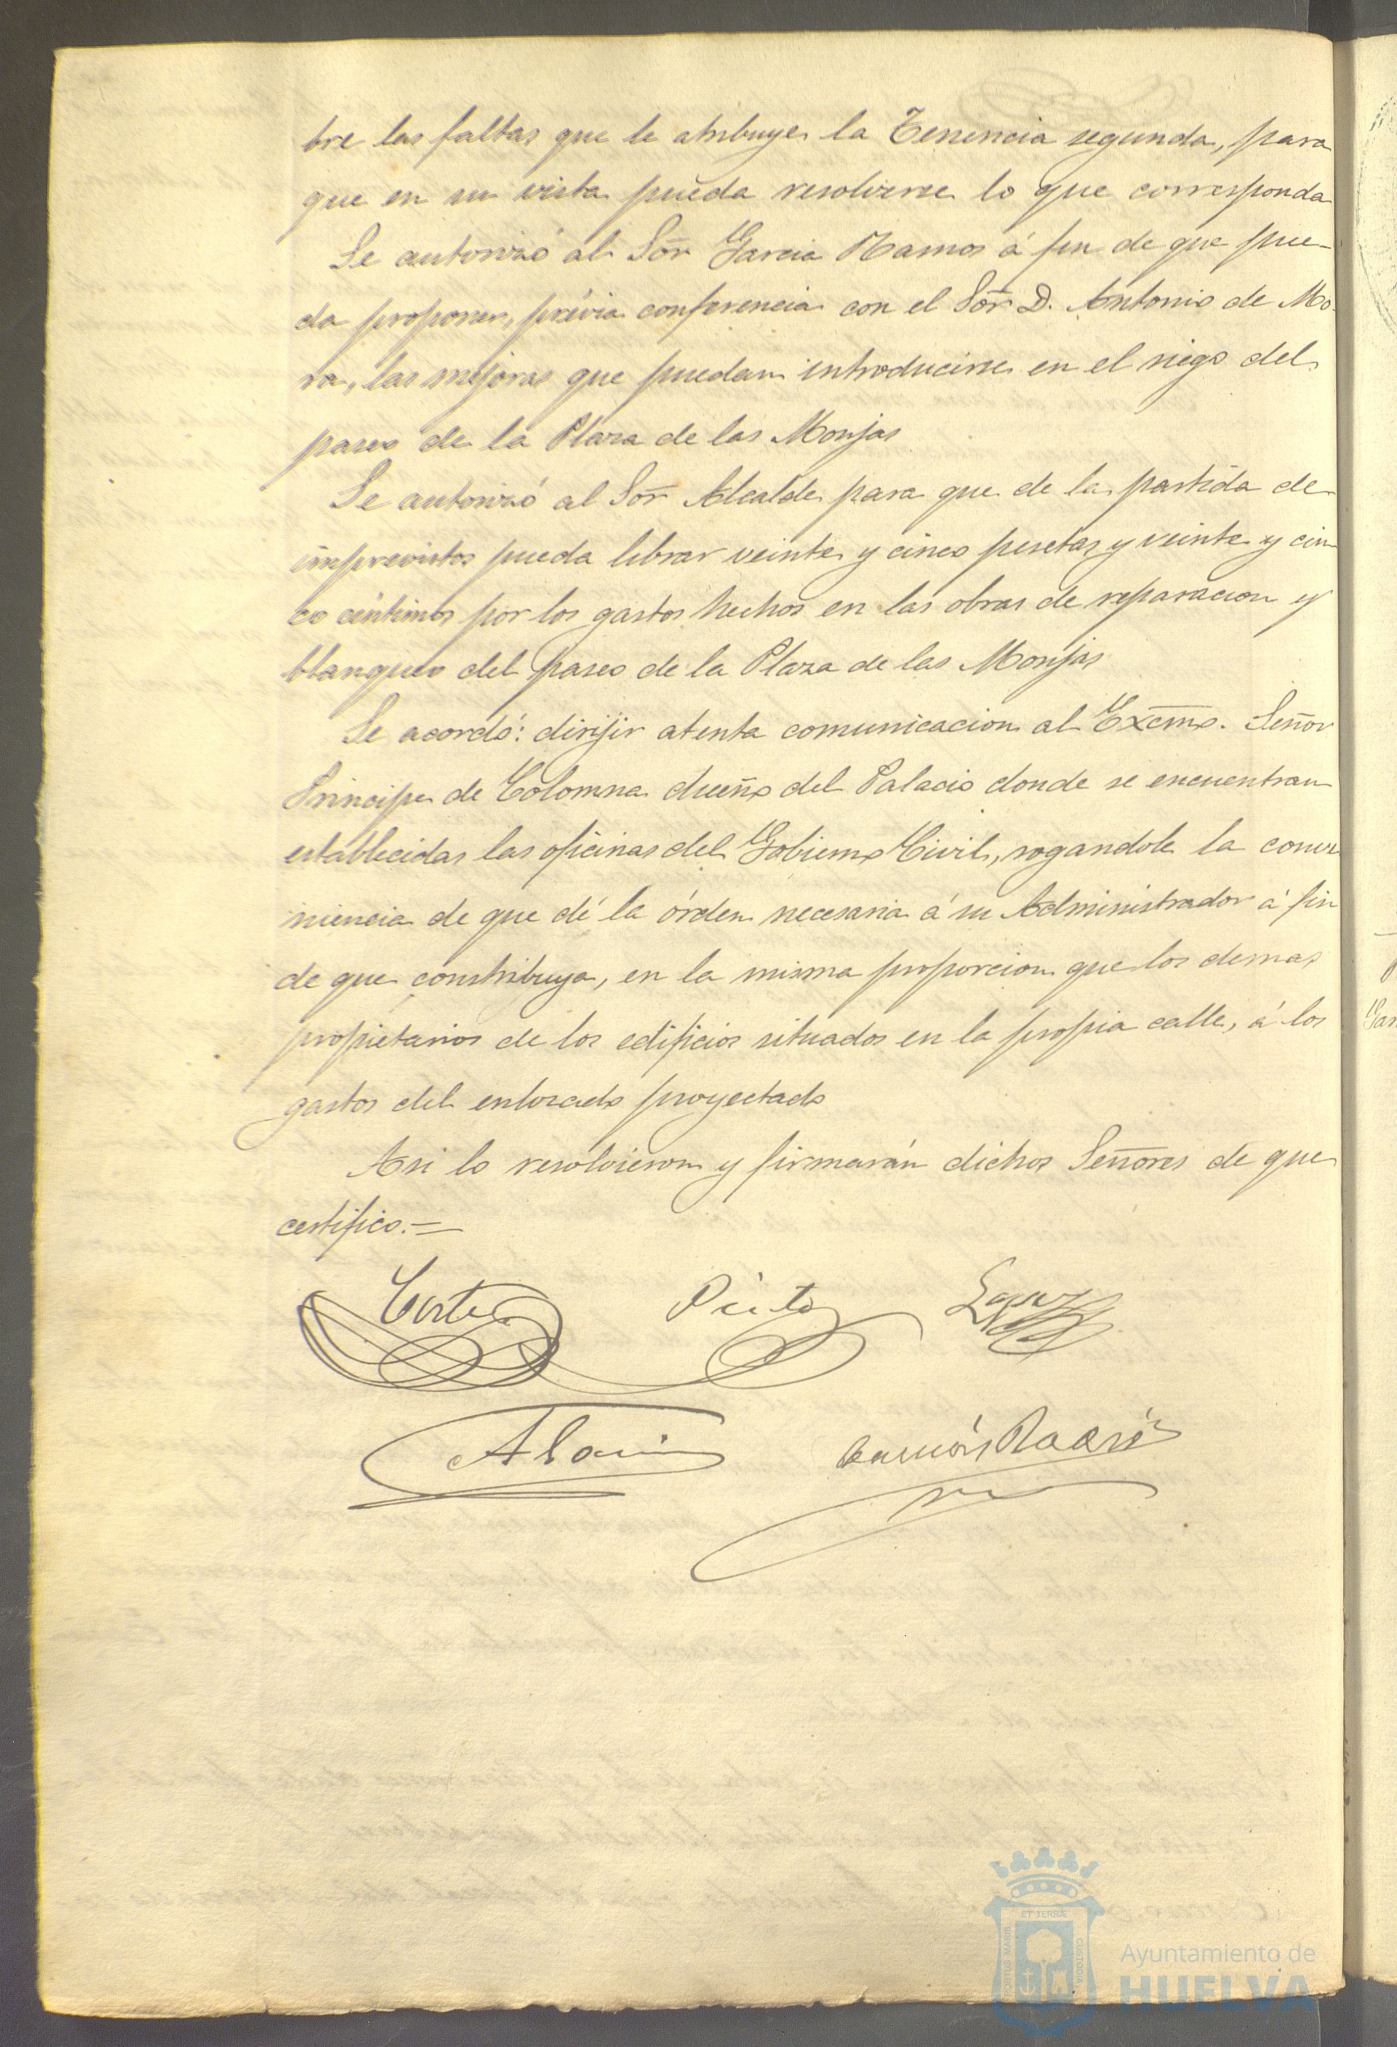 bre las faltas que le atribuye la Tenencia segunda, para
que en su vista pueda resolverse lo que corresponda
Se autorizó al Sõr Garcia Ramos á fin de que pue-
da proponer, prévia conferencia con el Sõr D. Antonio de Mo-
ra, las mejoras que puedan introducirse en el riego del
paseo de la Plaza de las Monjas
Se autorizó al Sõr Alcalde para que de la partida de
imprevistos pueda librar veinte y cinco pesetas y veinte y cin
co céntimos por los gastos hechos en las obras de reparacion y
blanqueo del paseo de la Plaza de las Monjas
Se acordó: dirijir atenta comunicacion al Excmo. Señor
Principe de Colomna dueño del Palacio donde se encuentran
establecidas las oficinas del Gobierno Civil, rogandole la conve
niencia de que dé la órden necesaria á su Administrador á fin
de que contribuya, en la misma proporcion que los demas
propietarios de los edificios situados en la propia calle, á los
gastos del enlosado proyectado
Asi lo resolvieron y firmarán dichos Señores de que
certifico.=
Cortes Pinto
Garcia Ramos
ET TERRÆ
CUSTODIA
Ayuntamiento de
HUELVA